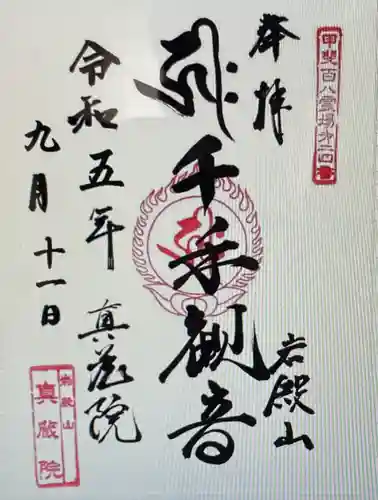 甲斐百八霊場第二四番
奉拝
岩殿山
千手観音
真蔵院
令和五年
九月十一日
岩殿山
真蔵院